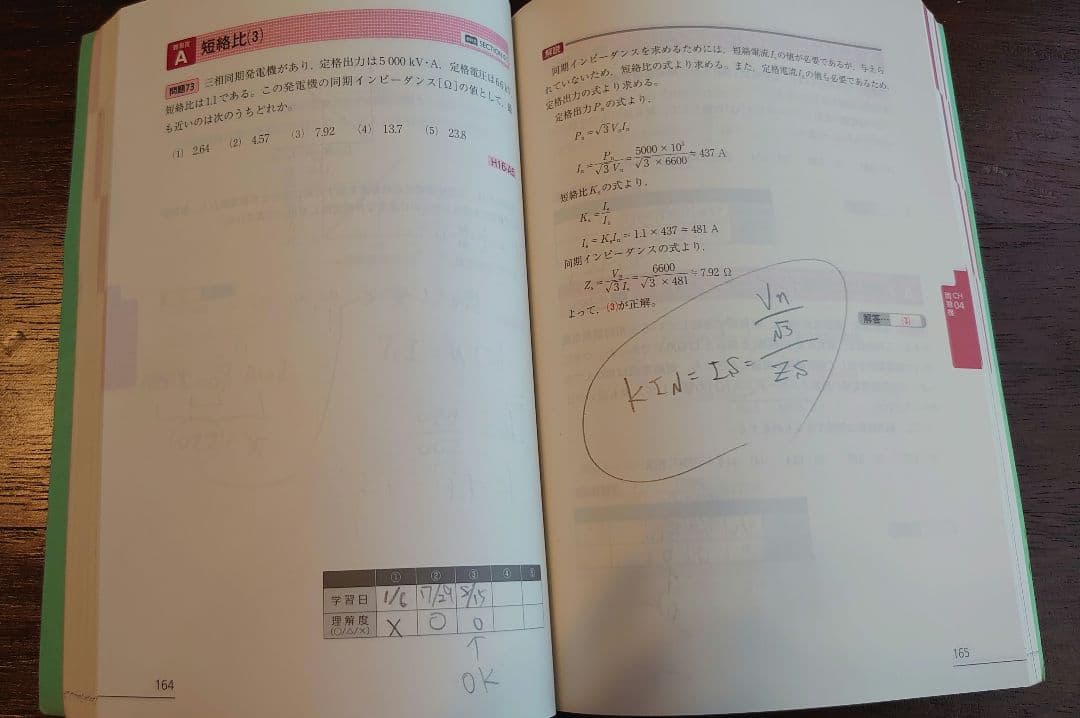 難易度 A 短絡比(3) SECTION
問題73 三相同期発電機があり、定格出力は5 000 kV・A、定格電圧は6.6 kV、
短絡比は1.1である。この発電機の同期インピーダンス[Ω]の値として、最
も近いのは次のうちどれか。
(1) 2.64 (2) 4.57 (3) 7.92 (4) 13.7 (5) 23.8
H16-A5
① ② ③ ④ ⑤
学習日 1/6 7/29 8/15
理解度 (○/△/×) X ○ ○
↑
OK
164
解説
同期インピーダンスを求めるためには、短絡電流Isの値が必要であるが、与えら
れていないため、短絡比の式より求める。また、定格電流Inの値も必要であるため、
定格出力の式より求める。
定格出力Pnの式より、
Pn=√3VnIn
In=Pn/√3Vn=5000×10³/√3×6600≒437 A
短絡比Ksの式より、
Ks=Is/In
Is=KsIn=1.1×437≒481 A
同期インピーダンスの式より、
Zs=Vn/√3Is=6600/√3×481≒7.92 Ω
よって、(3)が正解。
解答… (3)
KIN=IS=Vn/√3/ZS
CH 04
165